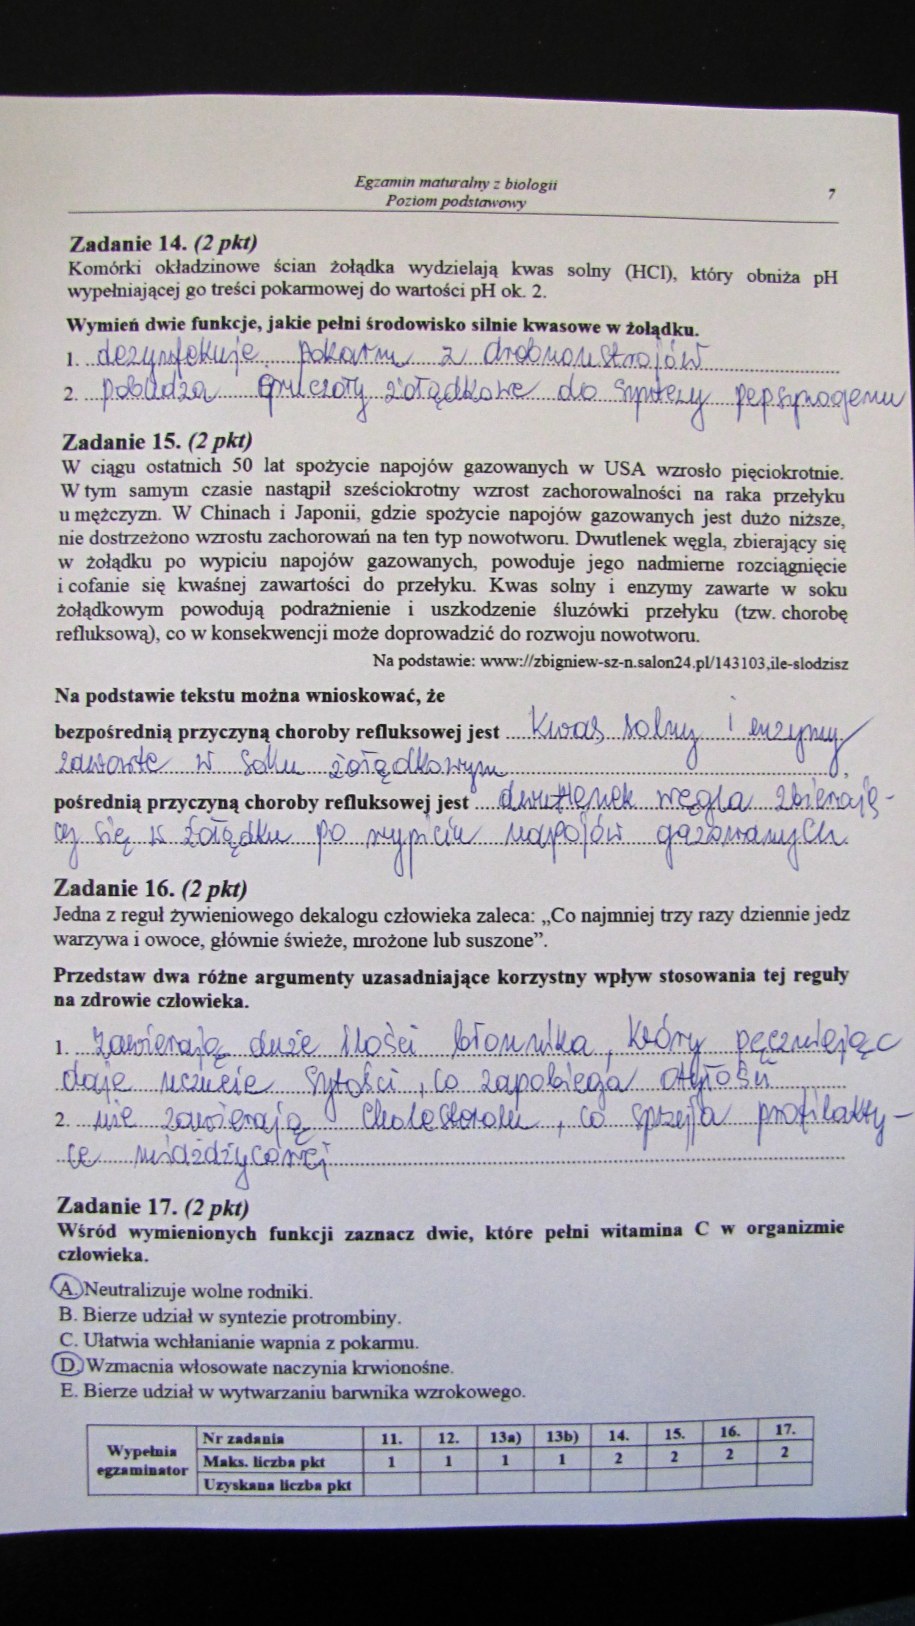 Egzamin maturalny z biologii
Poziom podstawowy
7
Zadanie 14. (2 pkt)
Komórki okładzinowe ścian żołądka wydzielają kwas solny (HCl), który obniża pH
wypełniającej go treści pokarmowej do wartości pH ok. 2.
Wymień dwie funkcje, jakie pełni środowisko silnie kwasowe w żołądku.
1. dezynfekuje pokarm z drobnoustrojów
2. pobudza gruczoły żołądkowe do syntezy pepsynogenu
Zadanie 15. (2 pkt)
W ciągu ostatnich 50 lat spożycie napojów gazowanych w USA wzrosło pięciokrotnie.
W tym samym czasie nastąpił sześciokrotny wzrost zachorowalności na raka przełyku
u mężczyzn. W Chinach i Japonii, gdzie spożycie napojów gazowanych jest dużo niższe,
nie dostrzeżono wzrostu zachorowań na ten typ nowotworu. Dwutlenek węgla, zbierający się
w żołądku po wypiciu napojów gazowanych, powoduje jego nadmierne rozciągnięcie
i cofanie się kwaśnej zawartości do przełyku. Kwas solny i enzymy zawarte w soku
żołądkowym powodują podrażnienie i uszkodzenie śluzówki przełyku (tzw. chorobę
refluksową), co w konsekwencji może doprowadzić do rozwoju nowotworu.
Na podstawie: www://zbigniew-sz-n.salon24.pl/143103,ile-slodzisz
Na podstawie tekstu można wnioskować, że
bezpośrednią przyczyną choroby refluksowej jest kwas solny i enzymy
zawarte w soku żołądkowym,
pośrednią przyczyną choroby refluksowej jest dwutlenek węgla zbierają-
cy się w żołądku po wypiciu napojów gazowanych.
Zadanie 16. (2 pkt)
Jedna z reguł żywieniowego dekalogu człowieka zaleca: „Co najmniej trzy razy dziennie jedz
warzywa i owoce, głównie świeże, mrożone lub suszone”.
Przedstaw dwa różne argumenty uzasadniające korzystny wpływ stosowania tej reguły
na zdrowie człowieka.
1. zawierają duże ilości błonnika, który pęczniejąc
daje uczucie sytości, co zapobiega otyłości
2. nie zawierają cholesterolu, co sprzyja profilakty-
ce miażdżycowej
Zadanie 17. (2 pkt)
Wśród wymienionych funkcji zaznacz dwie, które pełni witamina C w organizmie
człowieka.
A. Neutralizuje wolne rodniki.
B. Bierze udział w syntezie protrombiny.
C. Ułatwia wchłanianie wapnia z pokarmu.
D. Wzmacnia włosowate naczynia krwionośne.
E. Bierze udział w wytwarzaniu barwnika wzrokowego.
Wypełnia egzaminator
Nr zadania 11. 12. 13a) 13b) 14. 15. 16. 17.
Maks. liczba pkt 1 1 1 1 2 2 2 2
Uzyskana liczba pkt